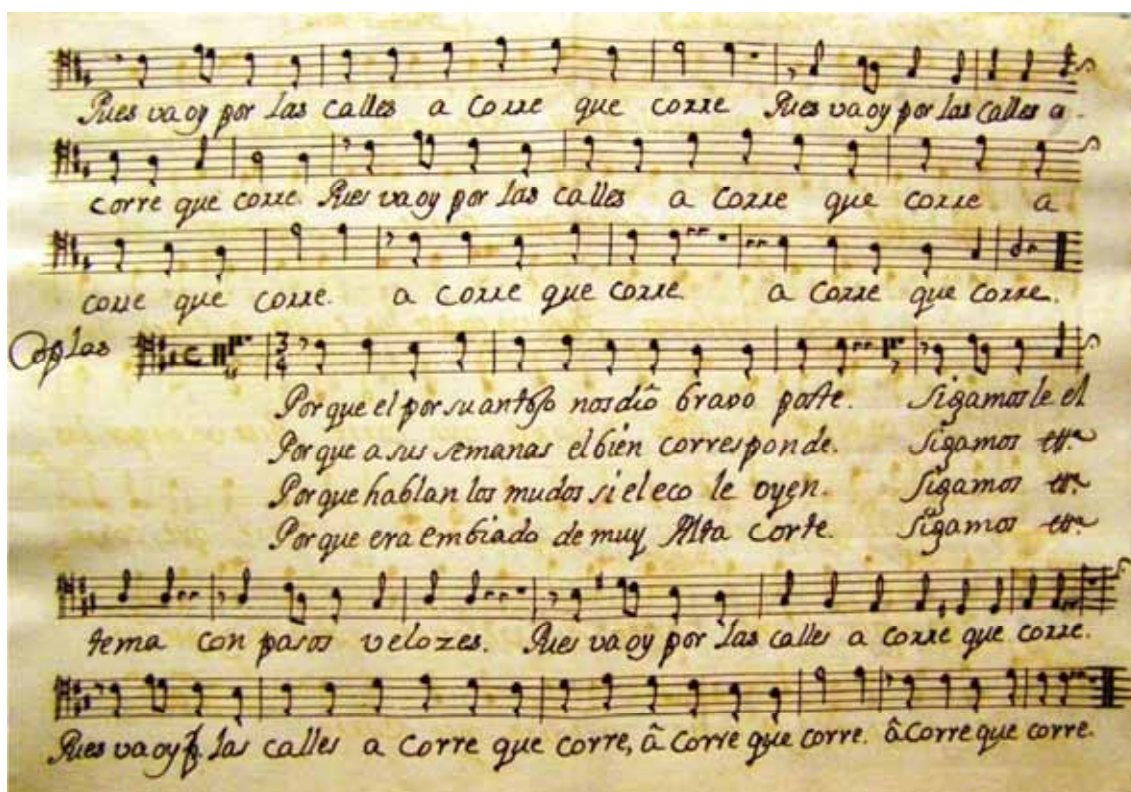 Pues va oy por las calles a corre que corre Pues va oy por las calles a
corre que corre. Pues va oy por las calles a corre que corre a
corre que corre. a corre que corre a corre que corre.
Coplas
3
4
Porque el por su antojo nos dió bravo poste. Sigamosle el
Porque a sus semanas el bien corresponde. Sigamos ettª
Porque hablan los mudos si el eco le oyen. Sigamos ettª
Porque era embiado de muy Alta Corte. Sigamos ettª
tema con pasos velozes. Pues va oy por las calles a corre que corre.
Pues va oy p. las calles a corre que corre, â corre que corre. â corre que corre.